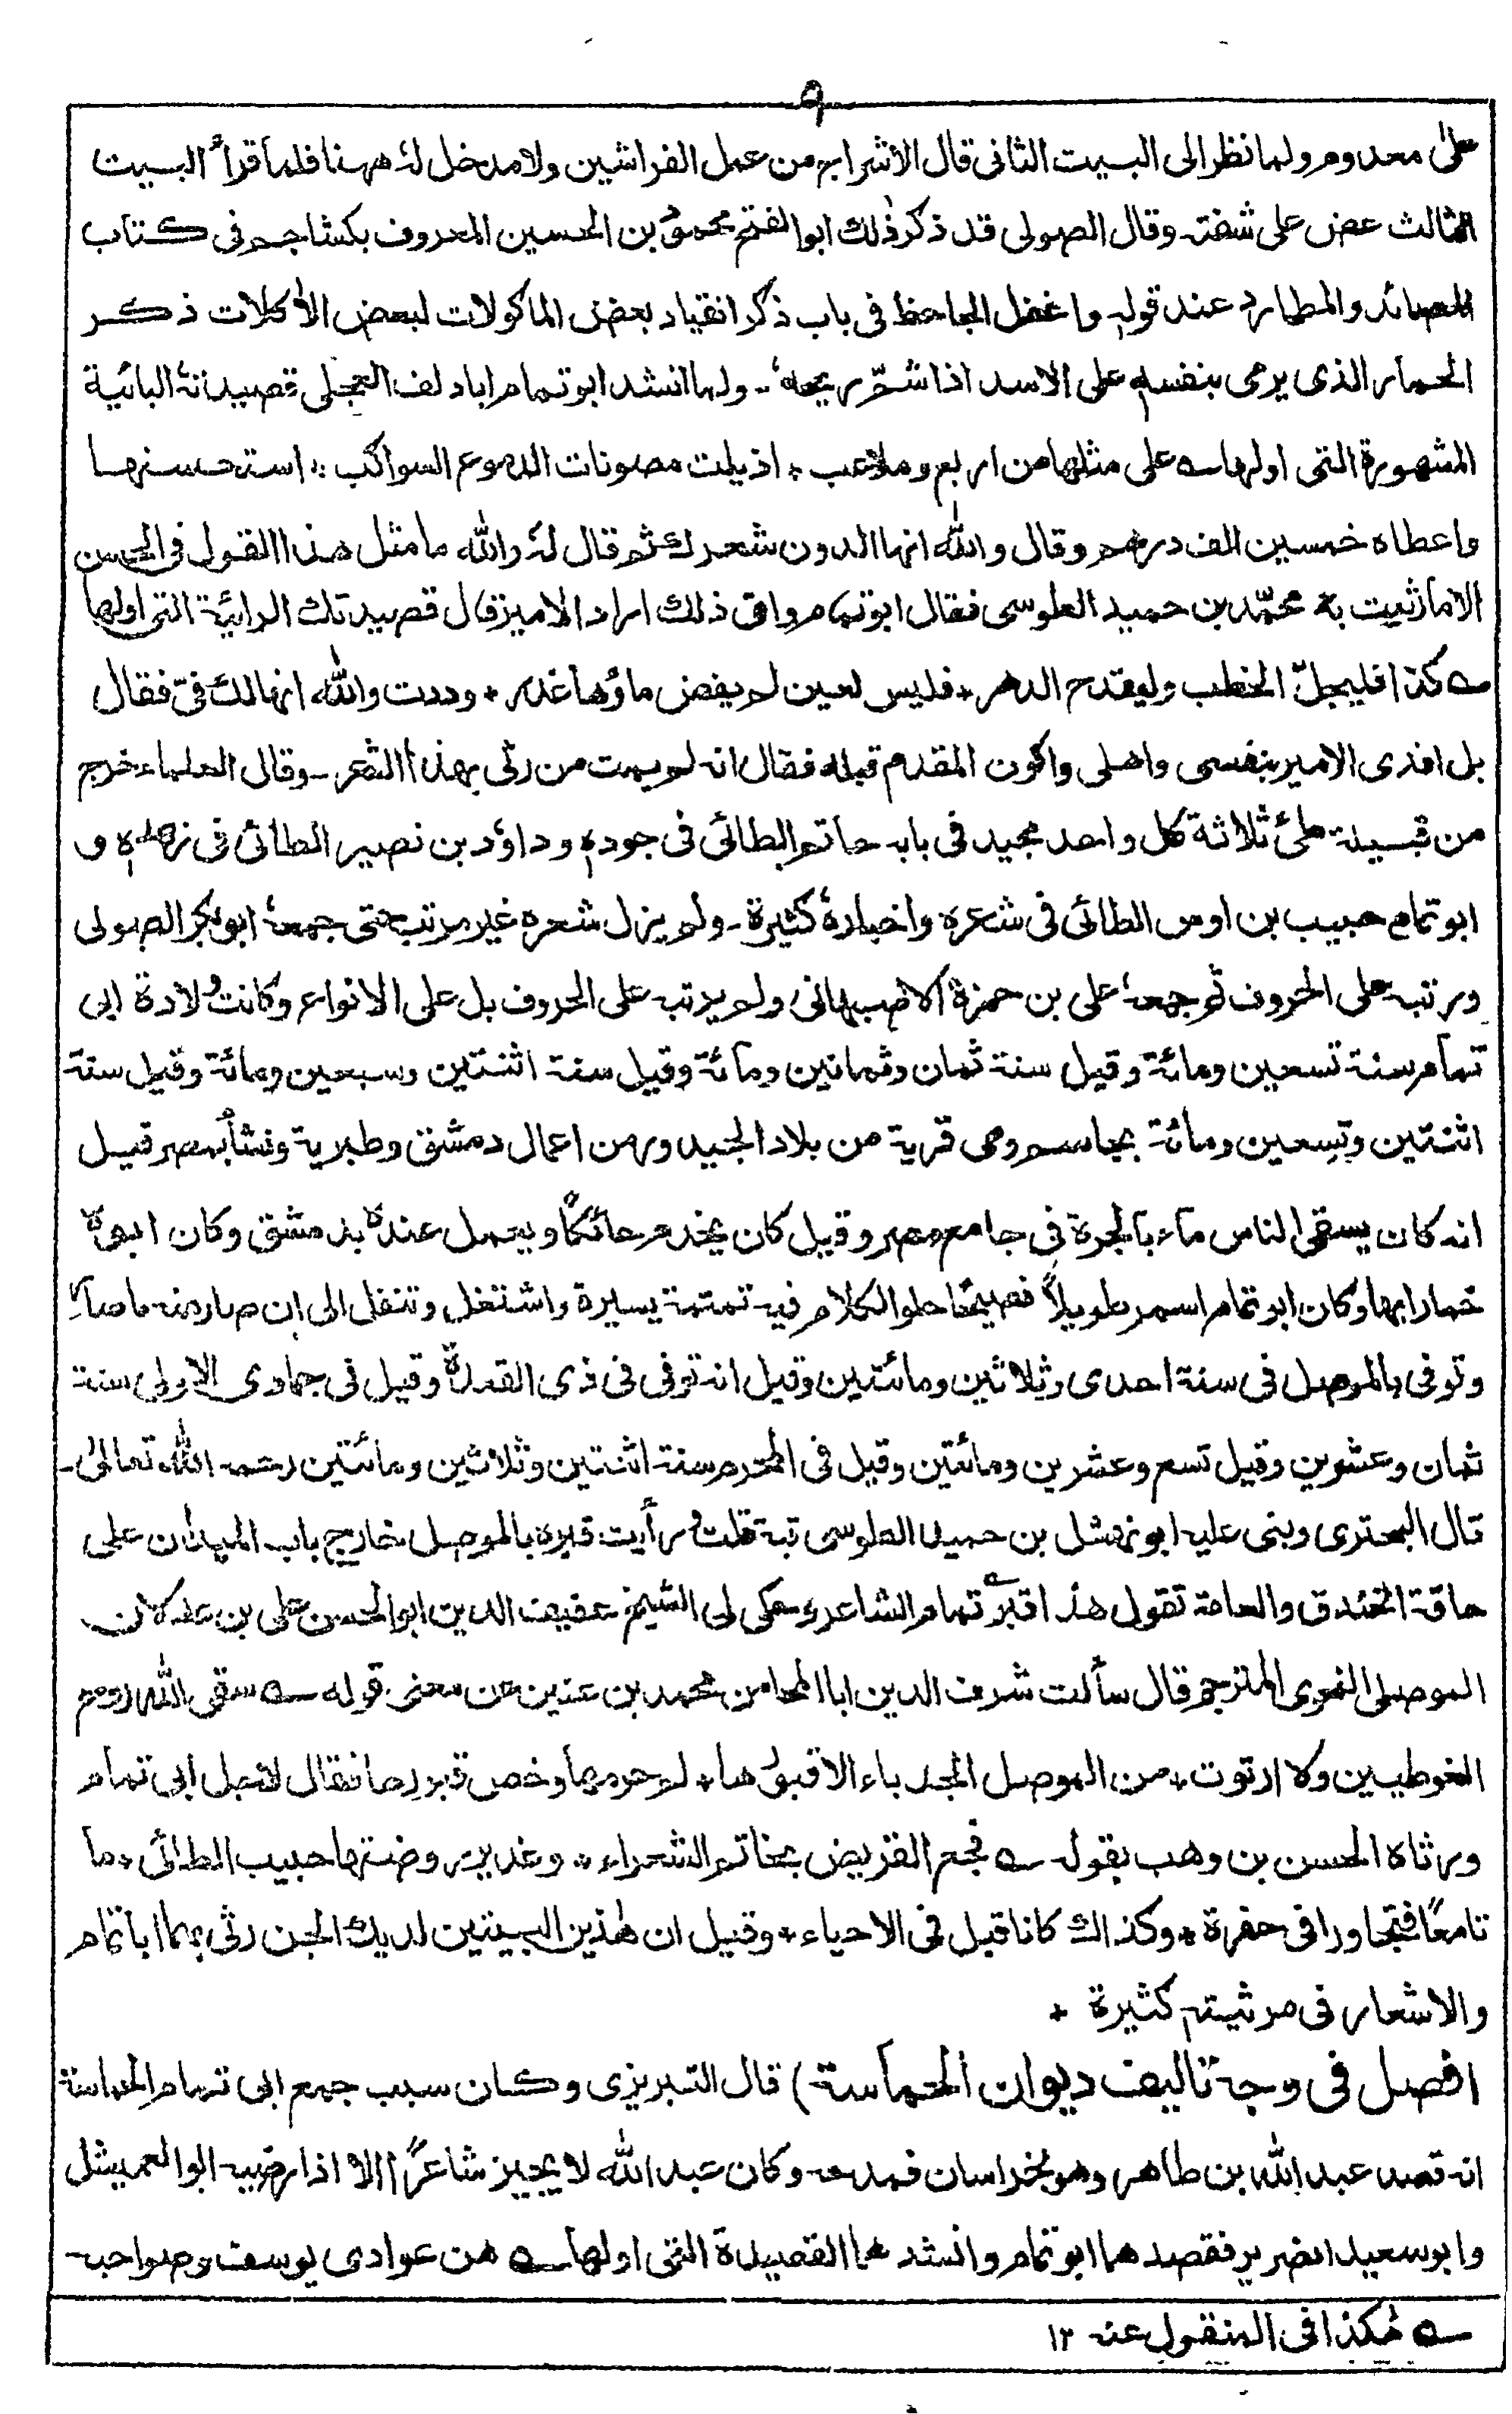 ٩
على معدوم ولما نظر الى البيت الثانى قال الاشراج من عمل الفراشين ولا مدخل له ههنا فلما قرأ البيت
الثالث عض على شفته وقال الصولى قد ذكر ذلك ابو الفتح محمود بن الحسين المعروف بكشاجم فى كتاب
المصائد والمطارد عند قوله واغفل الجاحظ فى باب ذكر انقياد بعض الماكولات لبعض الأكلات ذكر
الحمار الذى يرمى بنفسه على الاسد اذا شمّ ريحه ۔ ولما انشد ابو تمام ابا دلف العجلى قصيدته البائية
المشهورة التى اولها ؎ على مثلها من اربع وملاعب ؛ اذيلت مصونات الدموع السواكب ؛ استحسنها
واعطاه خمسين الف درهم وقال والله انها لدون شعرك ثم قال له والله ما مثل هذا القول فى الحسن
الا ما رثيت به محمّد بن حميد الطوسى فقال ابو تمام واى ذلك اراد الامير قال قصيدتك الرائية التى اولها
؎ كذا فليجلّ الخطب وليفدح الدهر + فليس لعين لم يفض ماؤها عذر + وددت والله انها لك فىّ فقال
بل افدى الامير بنفسى واهلى واكون المقدم قبله فقال انه لم يمت من رثى بهذا الشعر ۔ وقال العلماء خرج
من قبيلة طئ ثلاثة كل واحد مجيد فى بابه حاتم الطائى فى جوده وداؤد بن نصير الطائى فى زهده و
ابو تمام حبيب بن اوس الطائى فى شعره واخباره كثيرة ۔ ولم يزل شعره غير مرتب حتى جمعه ابو بكر الصولى
ورتبه على الحروف ثم جمعه على بن حمزة الاصبهانى ولم يرتبه على الحروف بل على الانواع وكانت ولادة ابى
تمام سنة تسعين ومائة وقيل سنة ثمان وثمانين ومائة وقيل سنة اثنتين وسبعين ومائة وقيل سنة
اثنتين وتسعين ومائة بجاسم وهى قرية من بلاد الجيدور من اعمال دمشق وطبرية ونشأ بمصر قيل
انه كان يسقى الناس ماء بالجرة فى جامع مصر وقيل كان يخدم حائكًا ويعمل عنده بدمشق وكان ابوه
خمارا بها وكان ابو تمام اسمر طويلاً فصيحًا حلو الكلام فيه تمتمة يسيرة واشتغل وتنقل الى ان صار منه ما صار
وتوفى بالموصل فى سنة احدى وثلاثين ومائتين وقيل انه توفى فى ذى القعدة وقيل فى جمادى الاولى سنة
ثمان وعشرين وقيل تسع وعشرين ومائتين وقيل فى المحرم سنة اثنتين وثلاثين ومائتين رحمه الله تعالىٰ۔
قال البحترى وبنى عليه ابو نهشل بن حميد الطوسى قبة قلت ورأيت قبره بالموصل خارج باب الميدان على
حافة الخندق والعامة تقول هذا قبر تمام الشاعر وحكى لى الشيخ عفيف الدين ابو الحسن على بن عدلان
الموصلى النحوى المترجم قال سألت شرف الدين ابا المحاسن محمد بن عنين عن معنى قوله ؎ سقى الله دوح
الغوطتين ولا ارتوت + من الموصل الجدباء الا قبورها + لم حرمها وخص قبورها فقال لاجل ابى تمام
ورثاه الحسن بن وهب بقوله ؎ فجع القريض بخاتم الشعراء + وغدير روضتها حبيب الطائى + ما
تا معًا فتجاورا فى حفرة + وكذاك كانا قبل فى الاحياء + وقيل ان هٰذين البيتين لديك الجن رثى بهما ابا تمام
والاشعار فى مرثيته كثيرة +
(فصل فى وجه تاليف ديوان الحماسة) قال التبريزى وكان سبب جمع ابى تمام الحماسة
انه قصد عبد الله بن طاهر وهو بخراسان فمدحه وكان عبد الله لا يجيز شاعرًا الا اذا رضيه ابو العميثل
وابو سعيد الضرير فقصدهما ابو تمام وانشدهما القصيدة التى اولها ؎ هن عوادى يوسف وصواحبه
؎ هٰكذا فى المنقول عنه ١٢